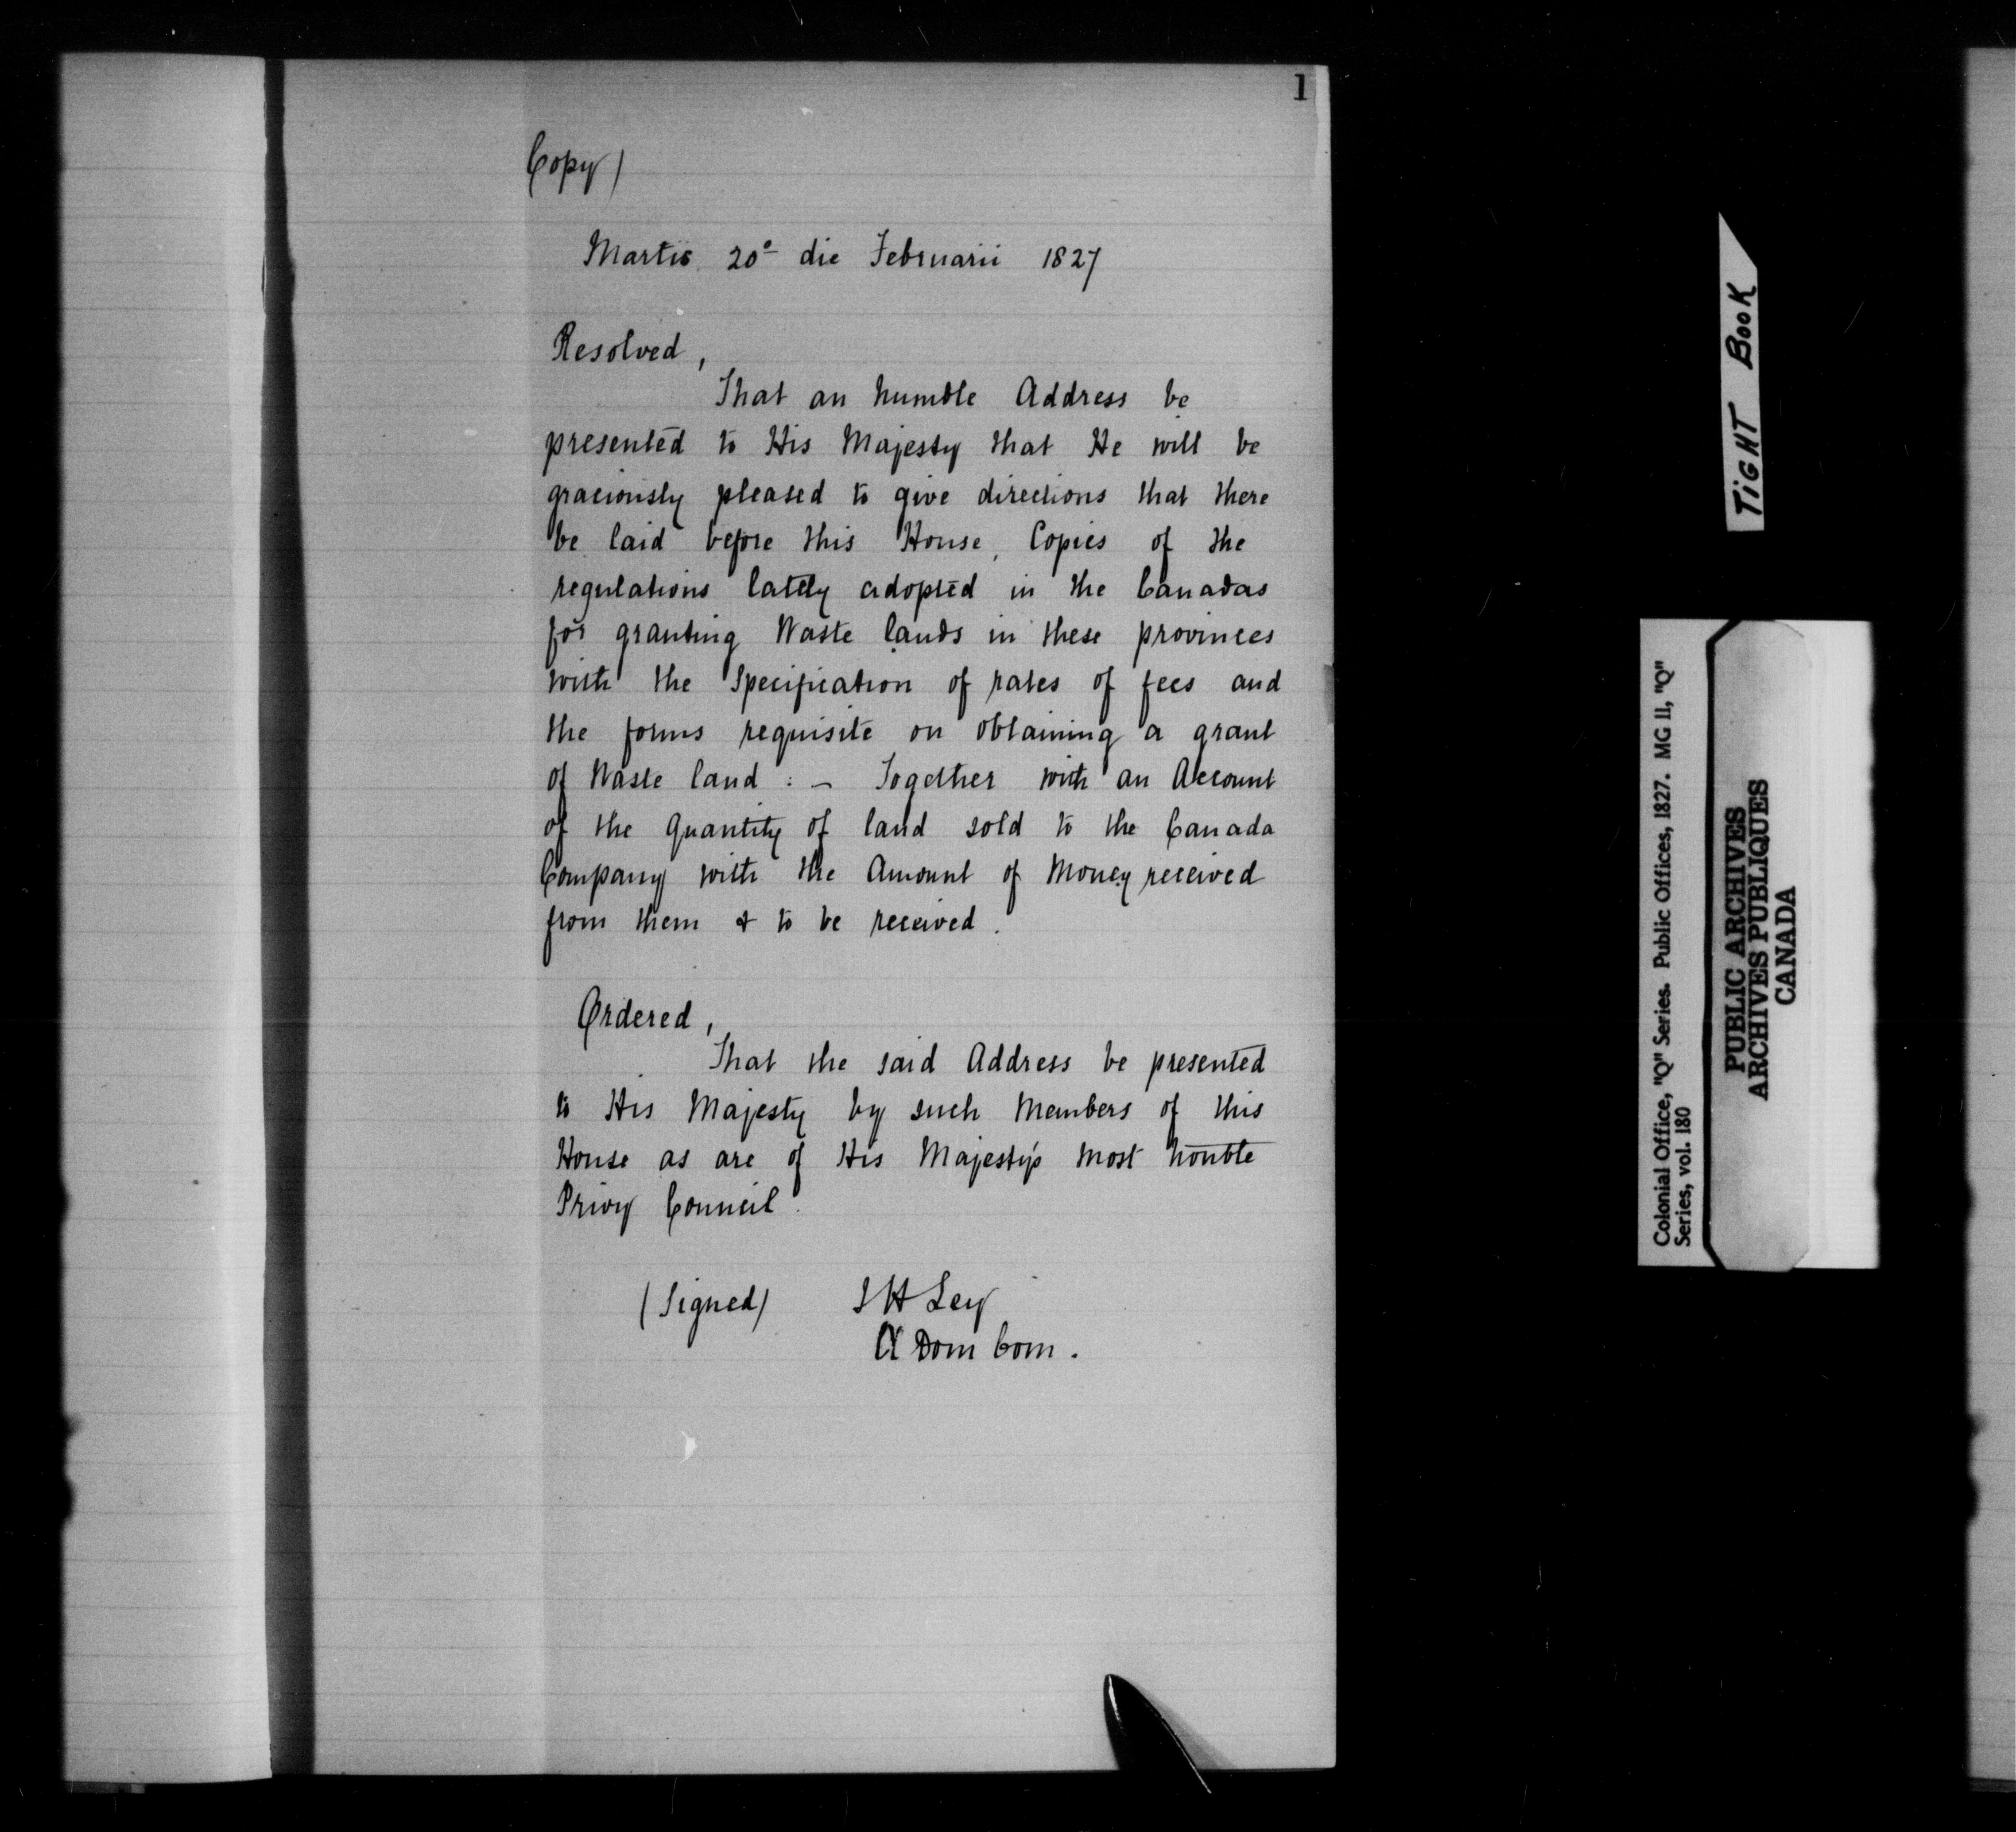 1
Copy)
Martis 20º die Februarii 1827
Resolved,
That an humble Address be
presented to His Majesty that He will be
graciously pleased to give directions that there
be laid before this House, Copies of the
regulations lately adopted in the Canadas
for granting Waste lands in these provinces
with the specification of rates of fees and
the forms requisite on obtaining a grant
of Waste land : – Together with an Account
of the Quantity of land sold to the Canada
Company with the Amount of Money received
from them & to be received.
Ordered,
That the said Address be presented
to His Majesty by such Members of this
House as are of His Majesty's most honble
Privy Council.
(Signed) J H Ley
Cl Dom Com.
TIGHT BOOK
Colonial Office, "Q" Series. Public Offices, 1827. MG 11, "Q"
Series, vol. 180
PUBLIC ARCHIVES
ARCHIVES PUBLIQUES
CANADA